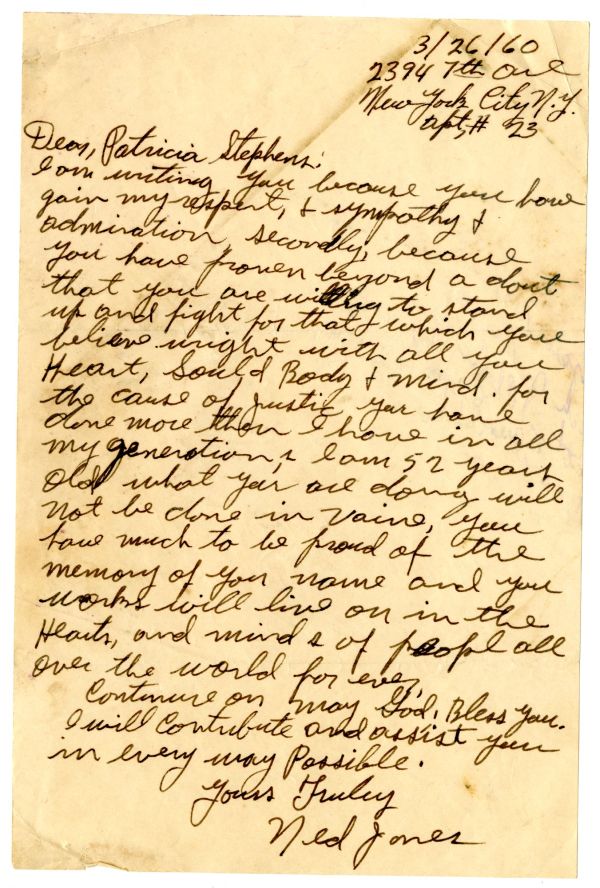 3/26/60
2394 7th Ave
New York City N.Y.
Apt, # 23
Dear, Patricia Stephens:
I am writing you because you have
gain my respert, & sympathy &
admiration, secondly, because
you have proven beyond a dout
that you are willing to stand
up and fight for that which you
believe wright with all you
Heart, Sould Body & mind. for
the cause of justic you have
done more then I have in all
my generation, I am 52 years
old what you are doing will
not be done in vaine, you
have much to be proud of the
memory of your name and you
works will live on in the
Hearts, and minds of people all
over the world for ever,
Continure on may God, Bless you.
I will contribute and assist you
in every way Possible.
Yours Truley
Ned Jones